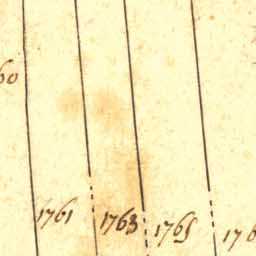 60
1761 1763 1765 176